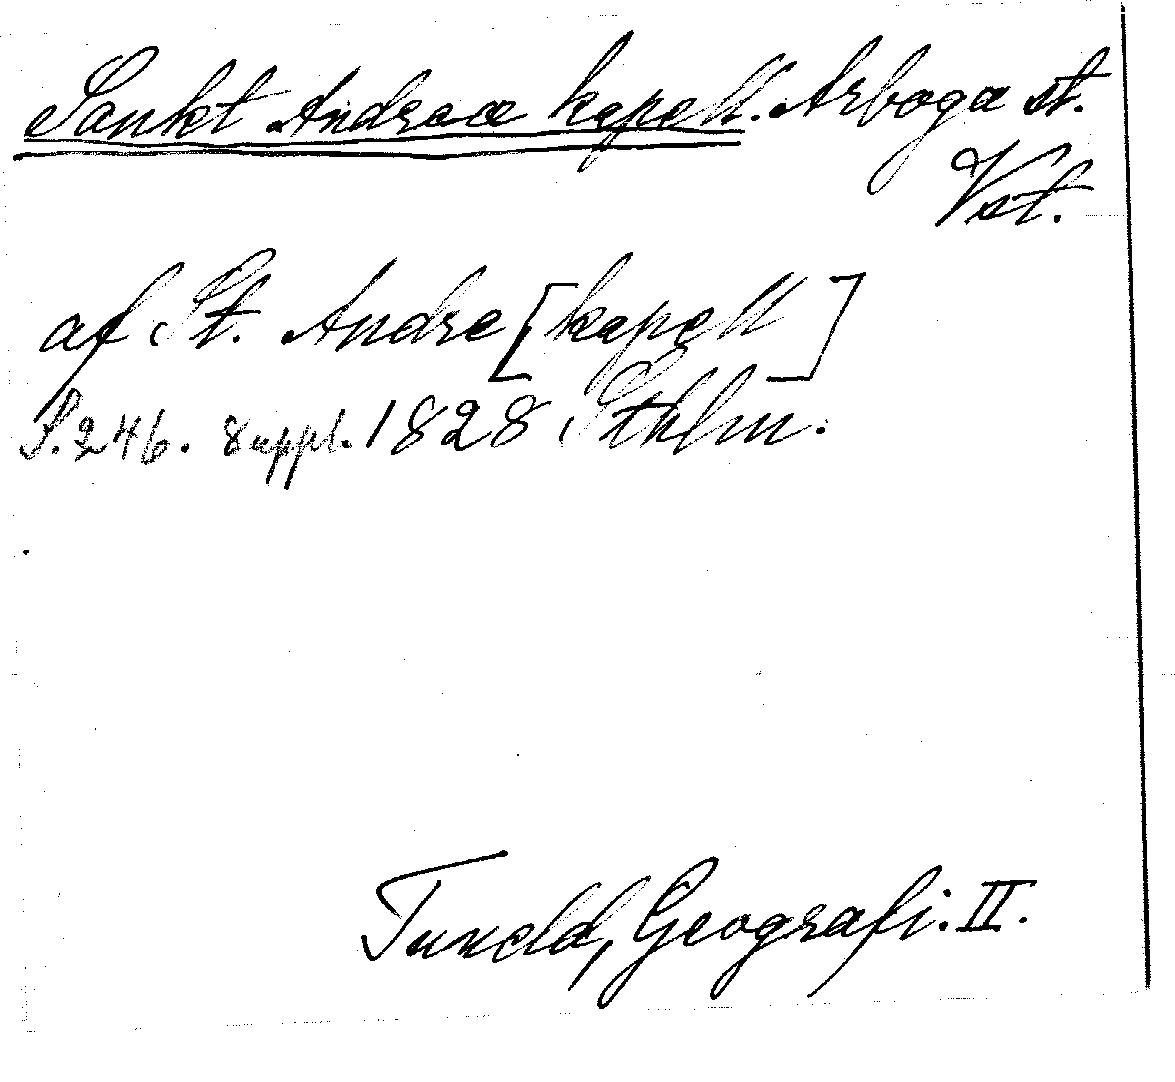 Sankt Andreæ kapell. Arboga st.
Vst.
af St. Andre [kapell]
S. 246. Suppl. 1828 Sthlm.
Tuneld, Geografi. II.